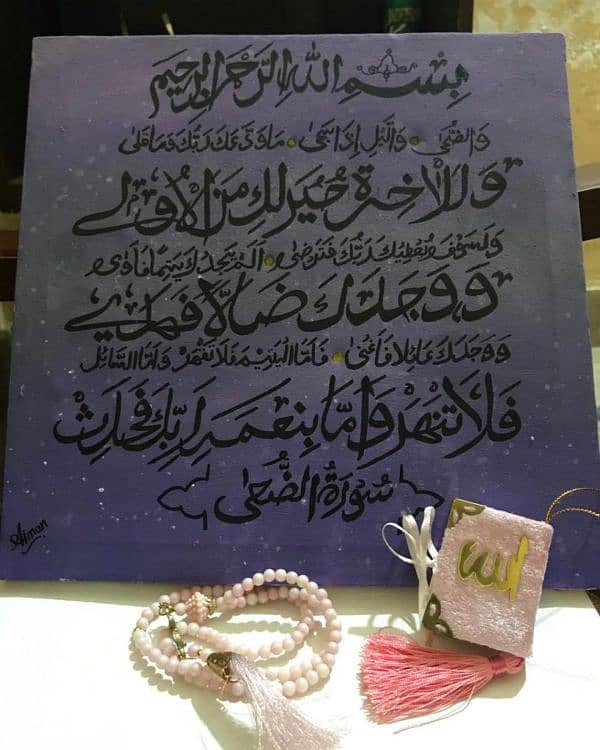 بِسْمِ اللهِ الرَّحْمٰنِ الرَّحِيْمِ
وَالضُّحٰى وَالَّيْلِ اِذَا سَجٰى مَا وَدَّعَكَ رَبُّكَ وَمَا قَلٰى
وَلَلْاٰخِرَةُ خَيْرٌ لَّكَ مِنَ الْاُوْلٰى
وَلَسَوْفَ يُعْطِيْكَ رَبُّكَ فَتَرْضٰى اَلَمْ يَجِدْكَ يَتِيْمًا فَاٰوٰى
وَوَجَدَكَ ضَآلًّا فَهَدٰى
وَوَجَدَكَ عَآئِلًا فَاَغْنٰى فَاَمَّا الْيَتِيْمَ فَلَا تَقْهَرْ وَاَمَّا السَّآئِلَ
فَلَا تَنْهَرْ وَاَمَّا بِنِعْمَةِ رَبِّكَ فَحَدِّثْ
سُوْرَةُ الضُّحٰى
Aiman
الله